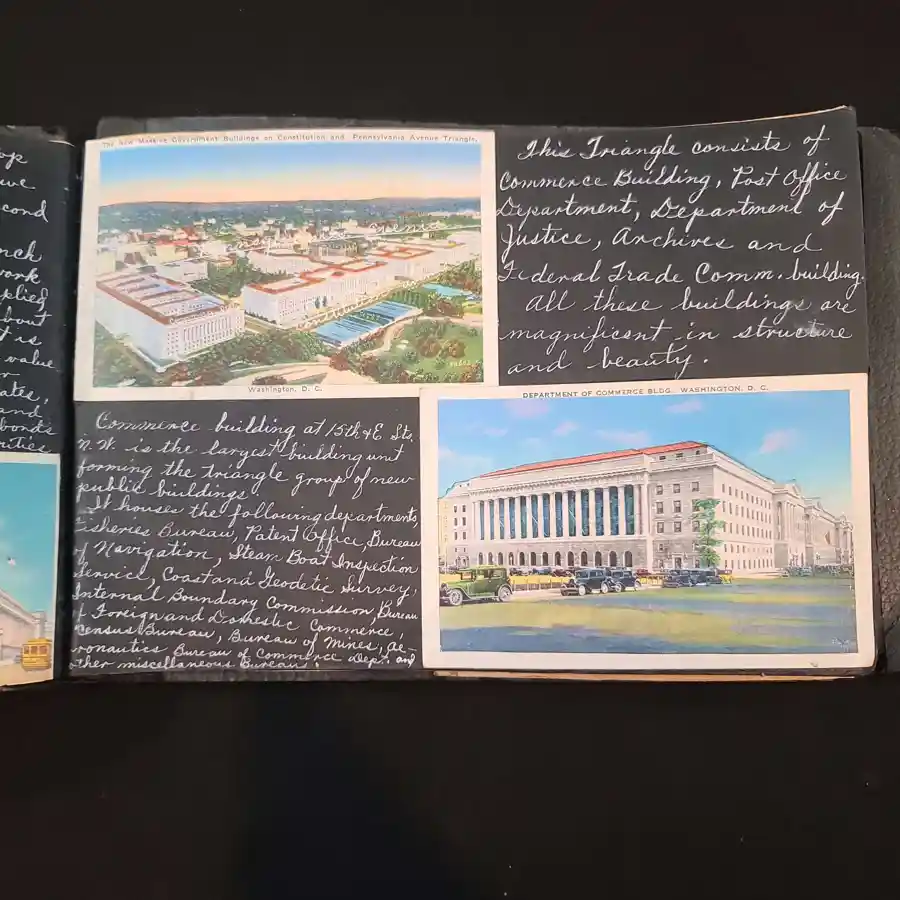 op
we
cond
nch
work
plied
bout
t is
value
r
ates,
and
bonds
rities
The New Massive Government Buildings on Constitution and Pennsylvania Avenue Triangle.
Washington, D. C.
This Triangle consists of
Commerce Building, Post Office
Department, Department of
Justice, Archives and
Federal Trade Comm. building.
All these buildings are
magnificent in structure
and beauty.
Commerce building at 15th & E Sts.
N.W. is the largest building unit
forming the triangle group of new
public buildings
It houses the following departments,
Fisheries Bureau, Patent Office, Bureau
of Navigation, Steam Boat Inspection
Service, Coast and Geodetic Survey,
Internal Boundary Commission, Bureau
of Foreign and Domestic Commerce,
Census Bureau, Bureau of Mines, Ae-
ronautics, Bureau of Commerce Dept. and
other miscellaneous Bureau.
DEPARTMENT OF COMMERCE BLDG. WASHINGTON, D. C.